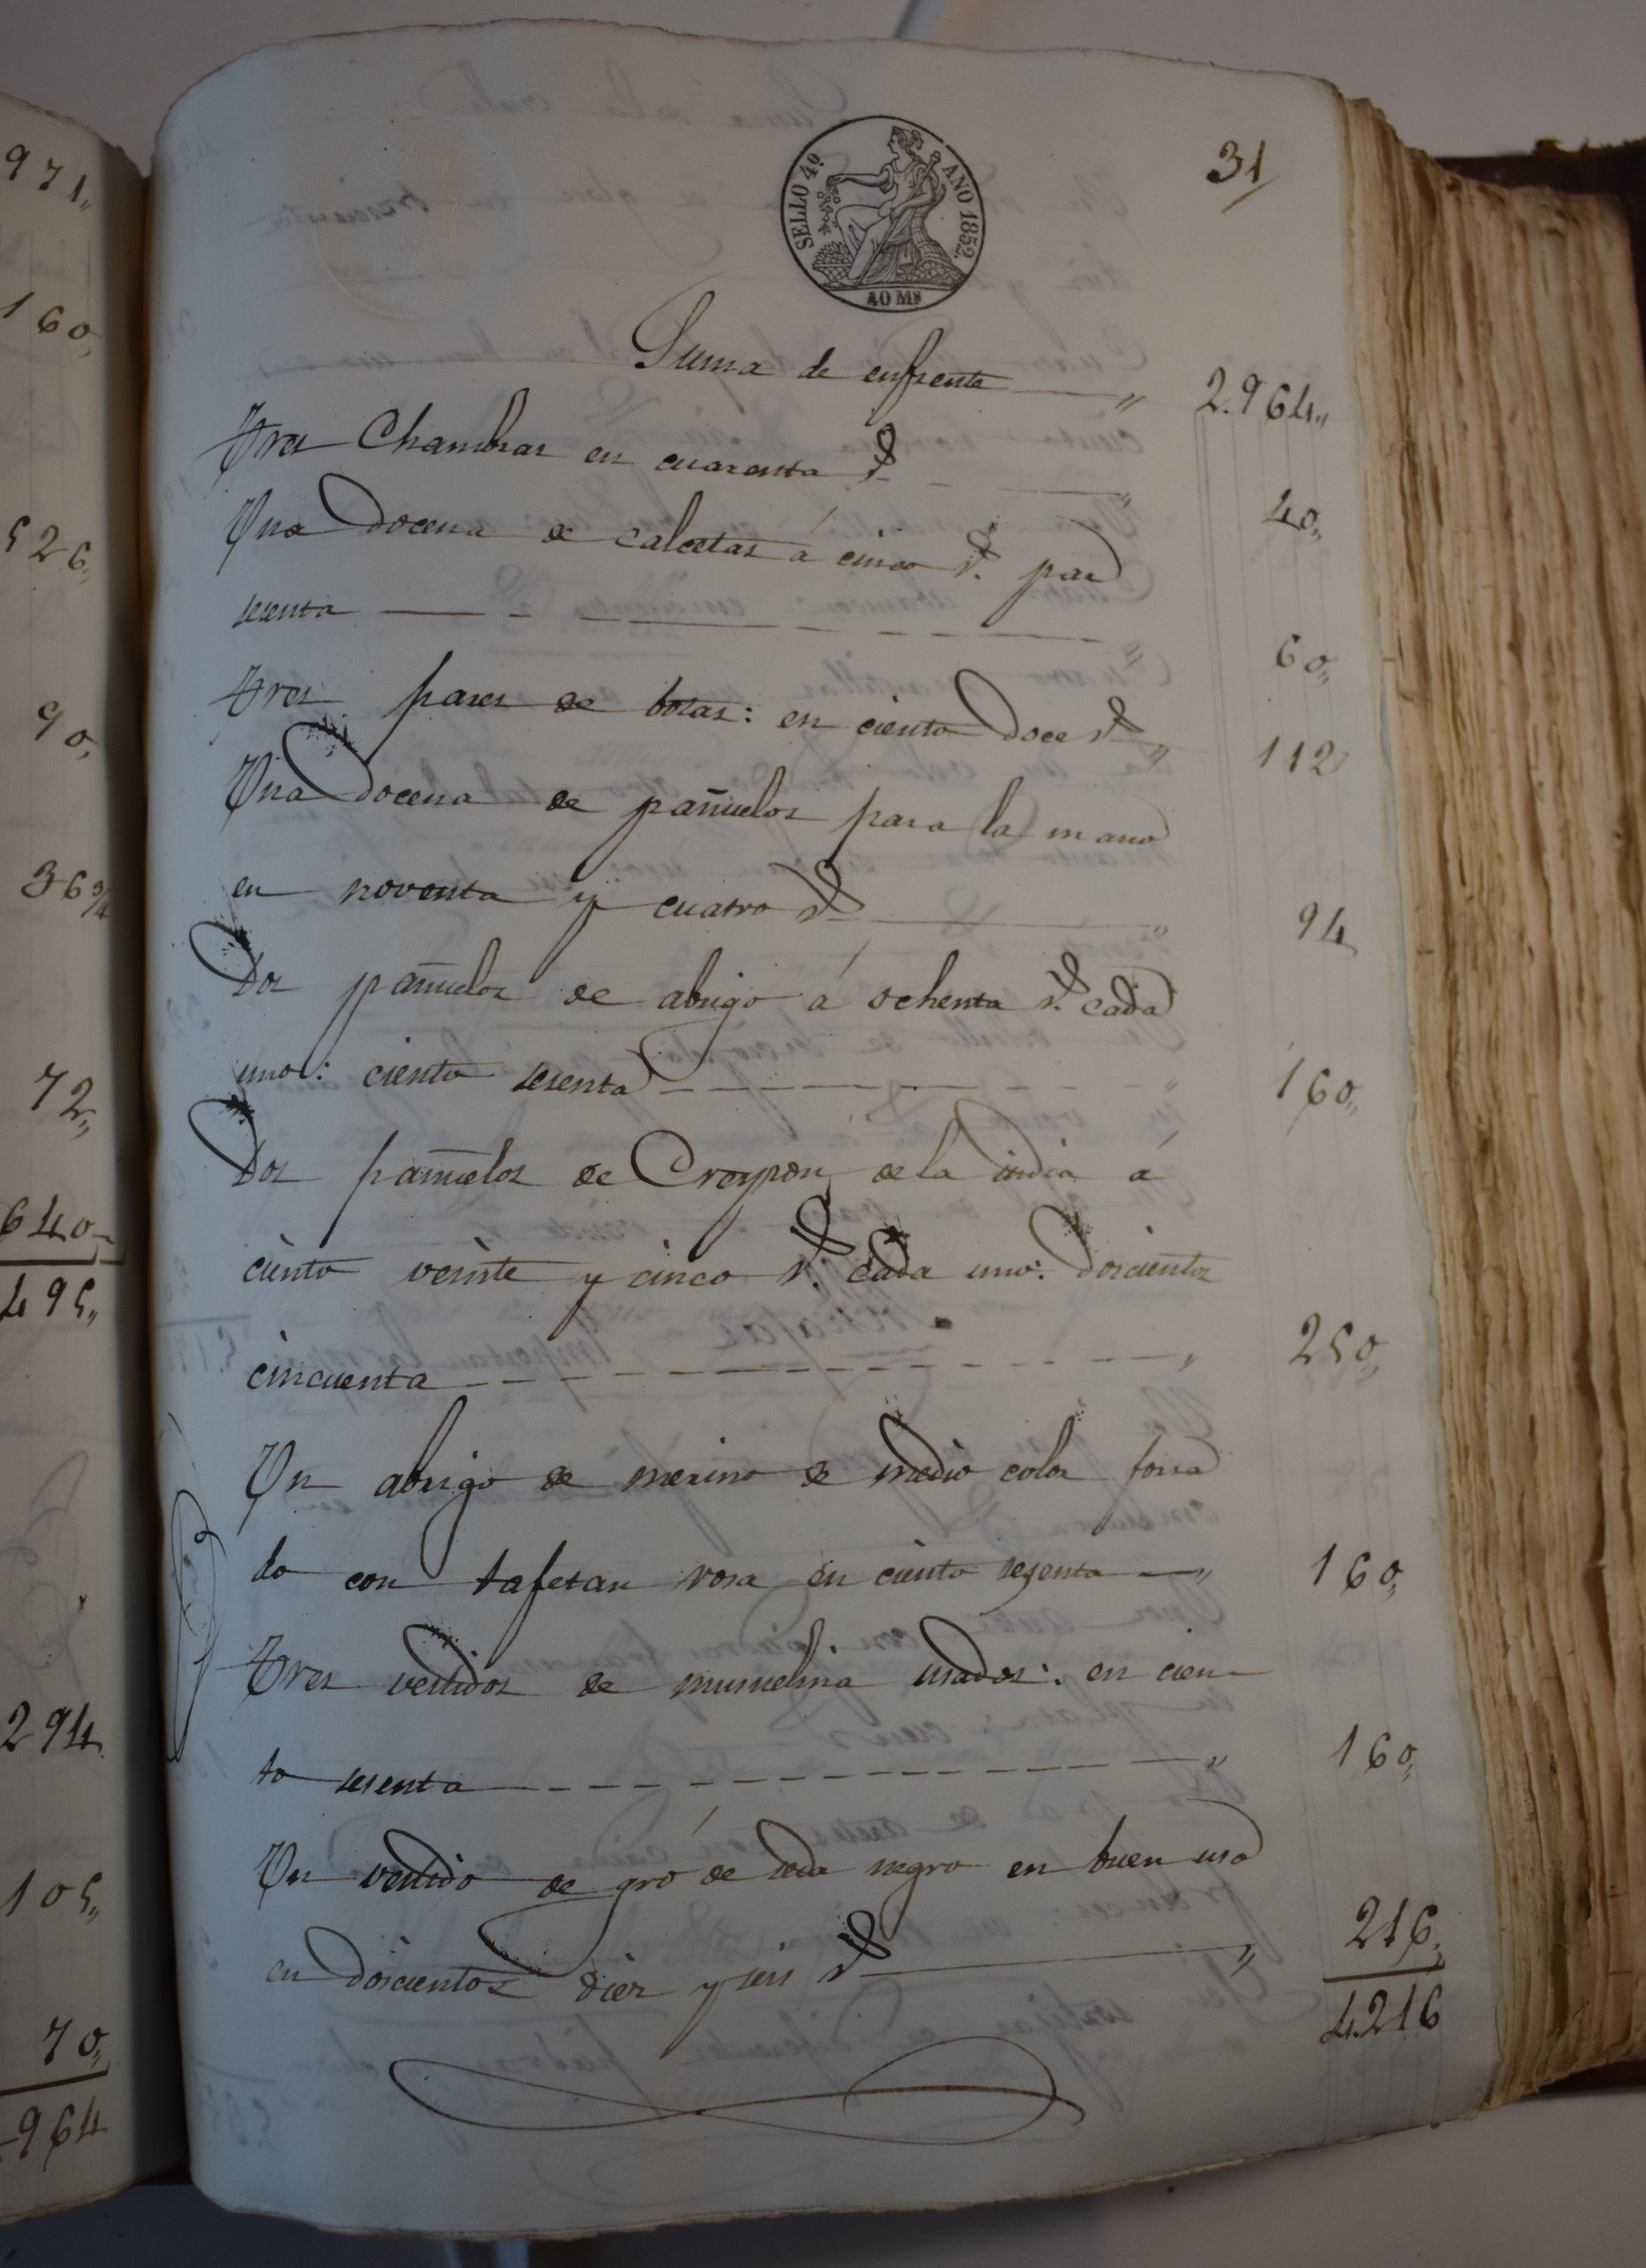 971"
160,
526,
90,
36 3/4
72,
640
495,
294
105,
70,
964
SELLO 4º AÑO 1852.
40 MS
31
Suma de enfrente " 2.964"
Tres Chambras en cuarenta rs " 40"
Una docena de calcetas á cinco rs. par
sesenta " 60"
Tres pares de botas: en ciento doce rs " 112
Una docena de pañuelos para la mano
en noventa y cuatro rs " 94
Dos pañuelos de abrigo á ochenta rs. cada
uno: ciento sesenta " 160"
Dos pañuelos de Creypon de la india á
ciento veinte y cinco rs. cada uno: doscientos
cincuenta " 250,
Un abrigo de merino de medio color forra
do con tafetan rosa en ciento sesenta " 160,
Tres vestidos de muselina usados: en cien-
to sesenta " 160,
Un vestido de gró de seda negro en buen uso
en doscientos diez y seis rs " 216,
4.216